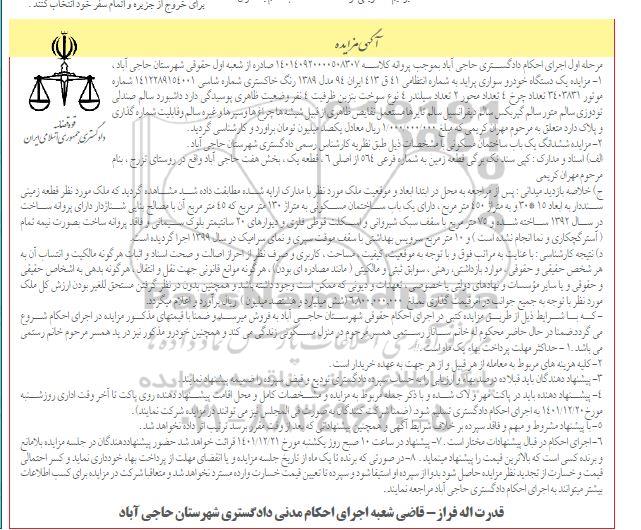 برای خروج از جزیره و اتمام سفر خود انتخاب کنند .
آگهی مزایده
قوه قضائیه
دادگستری جمهوری اسلامی ایران
مرحله اول اجرای احکام دادگستری حاجی آباد بموجب پرونده کلاسه ۱۴۰۱۴۰۹۲۰۰۰۰۵۰۸۳۰۷ صادره از شعبه اول حقوقی شهرستان حاجی آباد ،
۱- مزایده یک دستگاه خودرو سواری پراید به شماره انتظامی ۴۱ ق ۴۱۳ ایران ۹۴ مدل ۱۳۸۹ رنگ خاکستری شماره شاسی ۱۴۱۲۲۸۹۱۵۴۰۰۱ شماره
موتور ۳۴۰۳۸۳۱ تعداد چرخ ۴ تعداد محور ۲ تعداد سیلندر ۴ نوع سوخت بنزین ظرفیت ۴ نفر وضعیت ظاهری پوسیدگی دارد داشبورد سالم صندلی
تودوزی سالم متور سالم گیربکس سالم دیفرانسیل سالم تایرها مستعمل نقایص ظاهری از قبیل شیشه ها چراغ ها و سپرها و غیره سالم و قابلیت شماره گذاری
و پلاک دارد متعلق به مرحوم مهران کریمی که مبلغ ۱/۰۰۰/۰۰۰/۰۰۰ ریال معادل یکصد میلیون تومان برآورد و کارشناسی گردید.
۲- مزایده ششدانگ یک باب ساختمان مسکونی با مشخصات ذیل طبق نظریه کارشناس رسمی دادگستری شهرستان حاجی آباد .
الف) اسناد و مدارک : کپی سند تک برگی قطعه زمین به شماره فرعی ۵۶۴ از اصلی ۶ ، قطعه یک ، بخش هفت حاجی آباد واقع در روستای تزرج ، بنام
مرحوم مهران کریمی
ج) خلاصه بازدید میدانی : پس از مراجعه به محل در ابتدا ابعاد و موقعیت ملک مورد نظر با مدارک ارایه شده مطابقت داده شد مشاهده گردید که ملک مورد نظر قطعه زمینی
سنددار به ابعاد ۱۵*۳۰ و به متراژ ۴۵۰ متر مربع ، دارای یک باب ساختمان مسکونی به متراژ ۱۳۰ متر مربع که ۴۵ متر مربع آن با مصالح بنایی شناژدار دارای پروانه ساخت
در سال ۱۳۹۲ ساخته شده و ۷۵ متر مربع با سقف سبک شیروانی و اسکلت قوطی فلزی و دیوارهای ۲۰ سانتیمتر بلوک سیمانی و فاقد پروانه ساخت بصورت نیمه تمام
( آستر گچکاری و نما انجام نشده است ) و ۱۰ متر مربع سرویس بهداشتی با سقف موقت سپری و نمای سرامیک در سال ۱۳۹۹ اجرا گردیده است
د) نتیجه کارشناسی : با عنایت به مراتب فوق و با توجه به موقعیت، کیفیت ، مساحت ، کاربری و صرف نظر از احراز اصالت و صحت اسناد و اثبات هرگونه مالکیت و انتساب آن به
هر شخص حقیقی و حقوقی ، موارد بازداشتی، رهنی ، سوابق ثبتی و مالکیتی ( مانند مصادره ای بودن) ، هرگونه موانع قانونی جهت نقل و انتقال ، هرگونه بدهی به اشخاص حقیقی
و حقوقی و یا سایر مؤسسات و نهادهای دولتی یا خصوصی، تعهدات و دیونی که ممکن است وجود داشته باشد و همچنین بدون در نظر گرفتن مستحق للغیر بودن ارزش کل ملک
مورد نظر با توجه به جمیع جوانب در امر قیمت گذاری به مبلغ ۶/۸۰۰/۰۰۰/۰۰۰ (شش میلیارد و هشتصد میلیون ) ریال برآورد و اعلام میگردد.
-که با شرایط ذیل از طریق مزایده کتبی در اجرای احکام حقوقی شهرستان حاجی آباد به فروش میرسد و ضمنا با قیمتهای مذکور مزایده در اجرای احکام شروع
می گردد ضمنا در حال حاضر محکوم له خانم ساناز رستمی همسر مرحوم در منزل مسکونی زندگی می کند و همچنین خودرو مذکور نیز در ید همسر مرحوم خانم رستمی
می باشد . ۱- حداکثر مهلت پرداخت بهاء یک ماه است .
۲-کلیه هزینه های مربوط به معامله از هر قبیل و از هر جهت به عهده خریدار است .
۳- پیشنهاد دهندگان باید قبلا ده درصد بهاء و ارزیابی را به حساب سپرده دادگستری تودیع و فیش سپرده را ضمیمه پیشنهاد نمایند.
۴- پیشنهاد دهنده باید در پاکت مهر و لاک شده و با ذکر جمله مربوط به مزایده و مشخصات کامل و محل اقامت پیشنهاد دهنده روی پاکت تا آخر وقت اداری روز شنبه
مورخ ۱۴۰۱/۱۲/۲۰ به اجرای احکام دادگستری تسلیم شود. (ضمنا شرکت کنندگان به صورت فی المجلس نیز می توانند در مزایده شرکت نمایند).
۵- با پیشنهاد مشروط و مبهم و فاقد سپرده بر خلاف شرایط آگهی و همچنین پیشنهاداتی که بعد از وقت مقرر برسد ترتیب اثر داده نخواهد شد.
۶-اجرای احکام در قبال پیشنهادات مختار است . ۷- پیشنهاد در ساعت ۱۰ صبح روز یکشنبه مورخ ۱۴۰۱/۱۲/۲۱ قرائت خواهد شد حضور پیشنهاد دهندگان در جلسه مزایده بلامانع
و برنده کسی است که بالاترین قیمت را پیشنهاد مینماید . ۸-در صورتی که برنده تا یک ماه از تاریخ جلسه مزایده و با انقضای مهلت از پرداخت بهاء خودداری نماید و کسر احتمالی
قیمت و خسارت از تجدید نظر مزایده حاصل شود بدوا از سپرده او استیفا شود و سپرده تا تعیین قیمت خسارت وارده مسترد نخواهد شد و متعاقبا شرکت در مزایده برای کسب اطلاعات
بیشتر میتوانند به اجرای احکام دادگستری حاجی آباد مراجعه نمایند.
قدرت اله فراز – قاضی شعبه اجرای احکام مدنی دادگستری شهرستان حاجی آباد